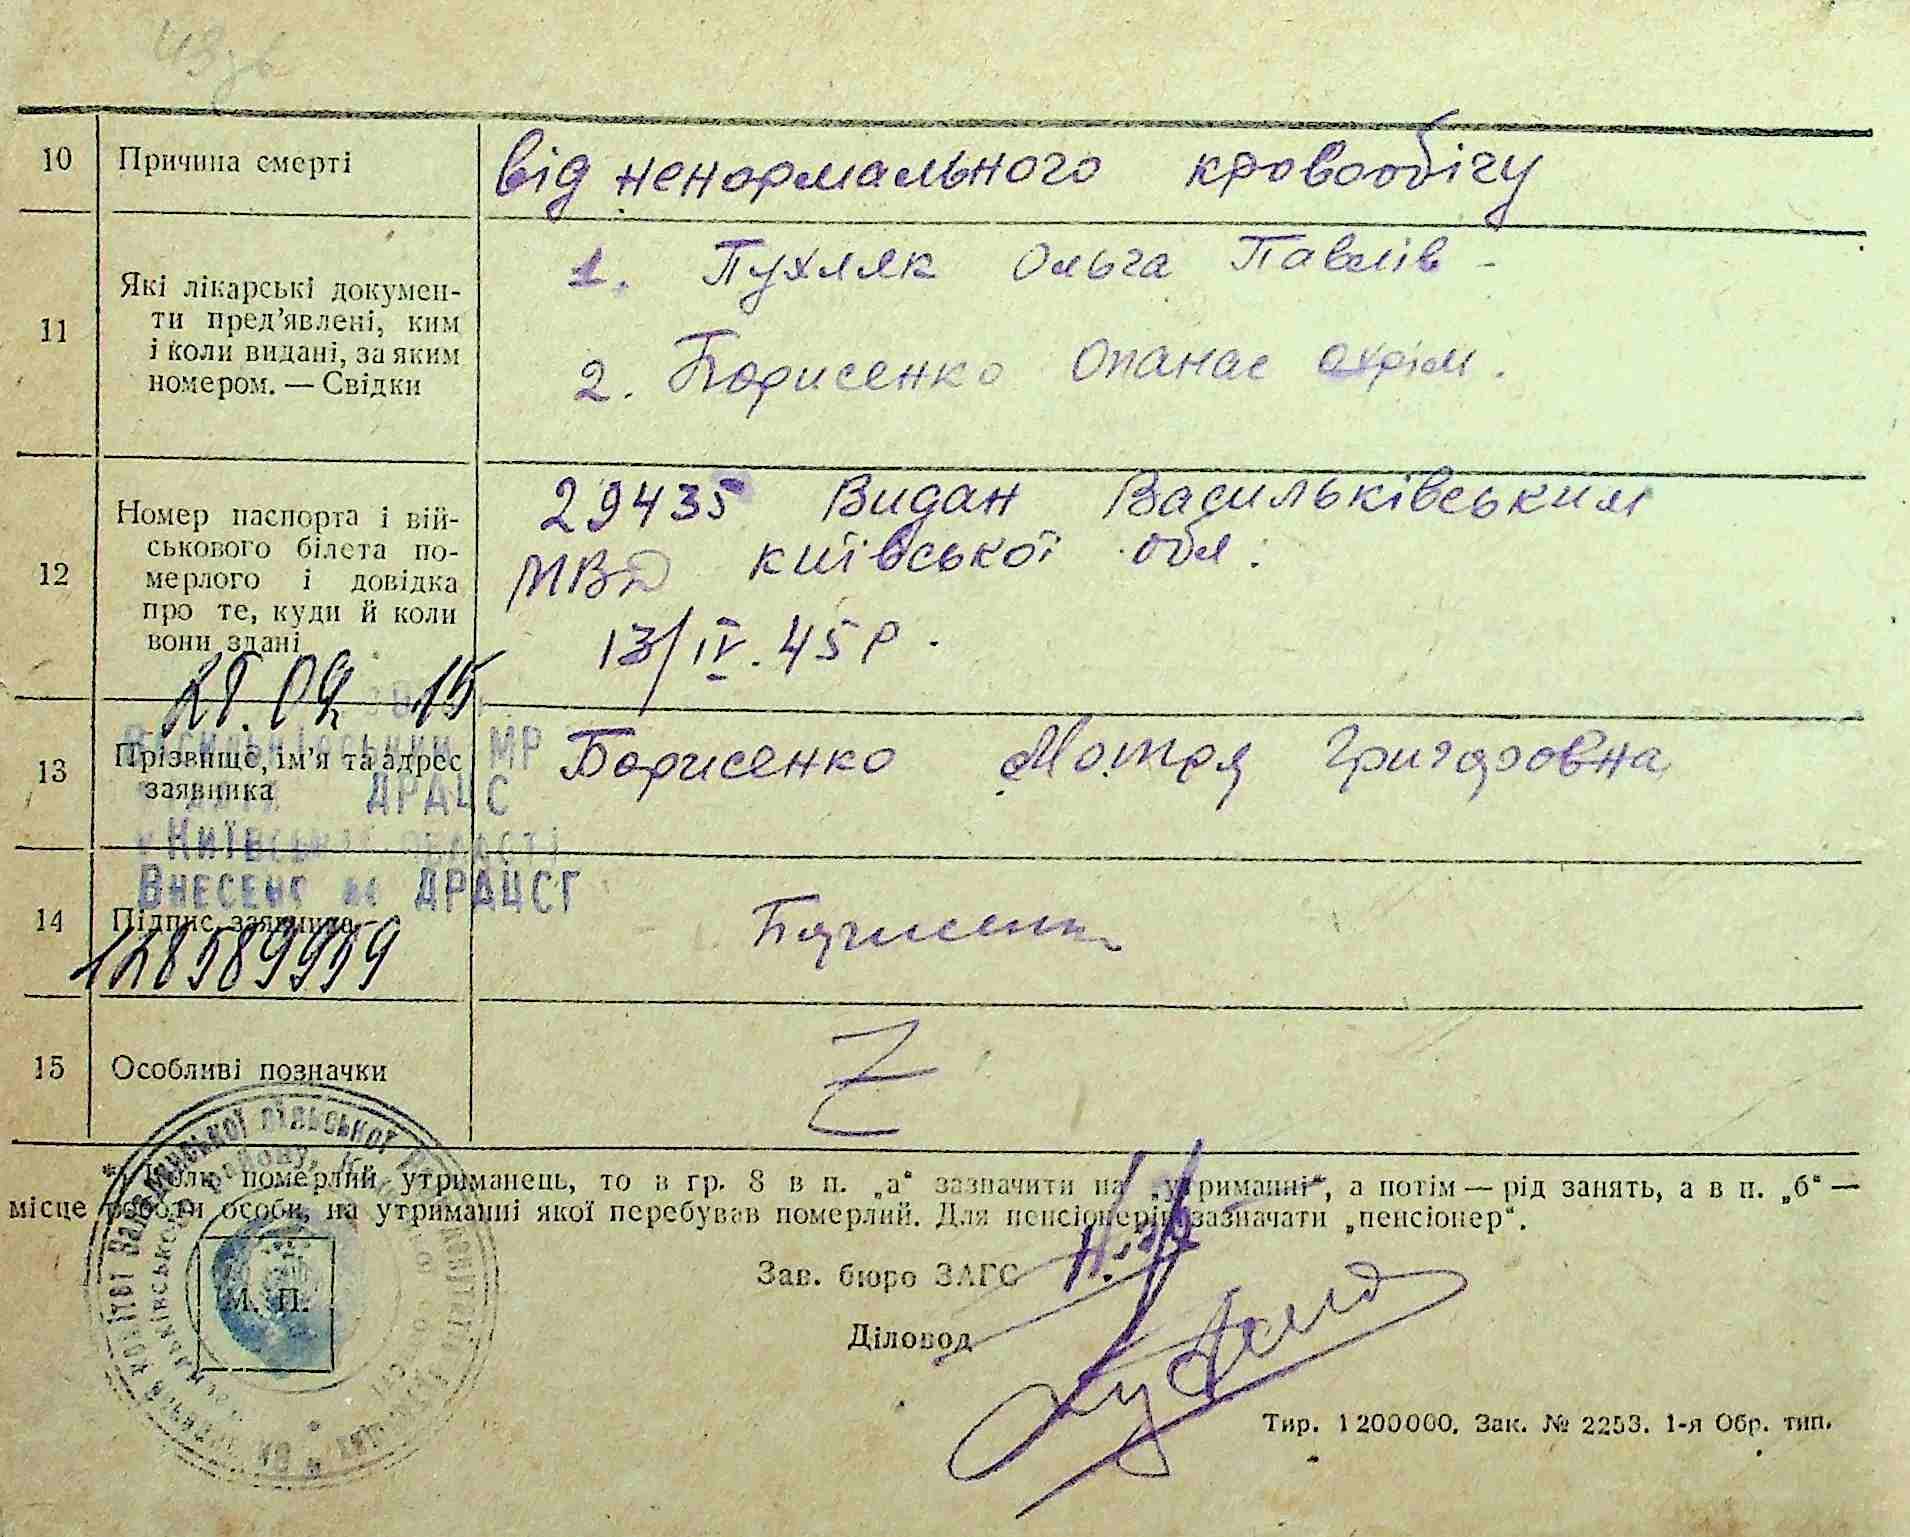 10 Причина смерті від ненормального кровообігу
11 Які лікарські докумен-
ти пред'явлені, ким
і коли видані, за яким
номером. — Свідки
1. Пухляк Ольга Павлів -
2. Борисенко Опанас Охрім.
12 Номер паспорта і вій-
ськового білета по-
мерлого і довідка
про те, куди й коли
вони здані
29435 Видан Васильківським
МВД київської обл.
13/IV. 45 р.
13 Прізвище, ім'я та адрес
заявника
Борисенко Мотря Григоровна
МР
ДРАЦС
Внесено до ДРАЦСГ
14 Підпис заявника
128589959
15 Особливі позначки
*) Коли померлий утриманець, то в гр. 8 в п. „а“ зазначити на „утриманні“, а потім — рід занять, а в п. „б“ —
місце роботи особи, на утриманні якої перебував померлий. Для пенсіонерів зазначати „пенсіонер“.
М. П.
Зав. бюро ЗАГС
Діловод
Тир. 1200000. Зак. № 2253. 1-я Обр. тип.